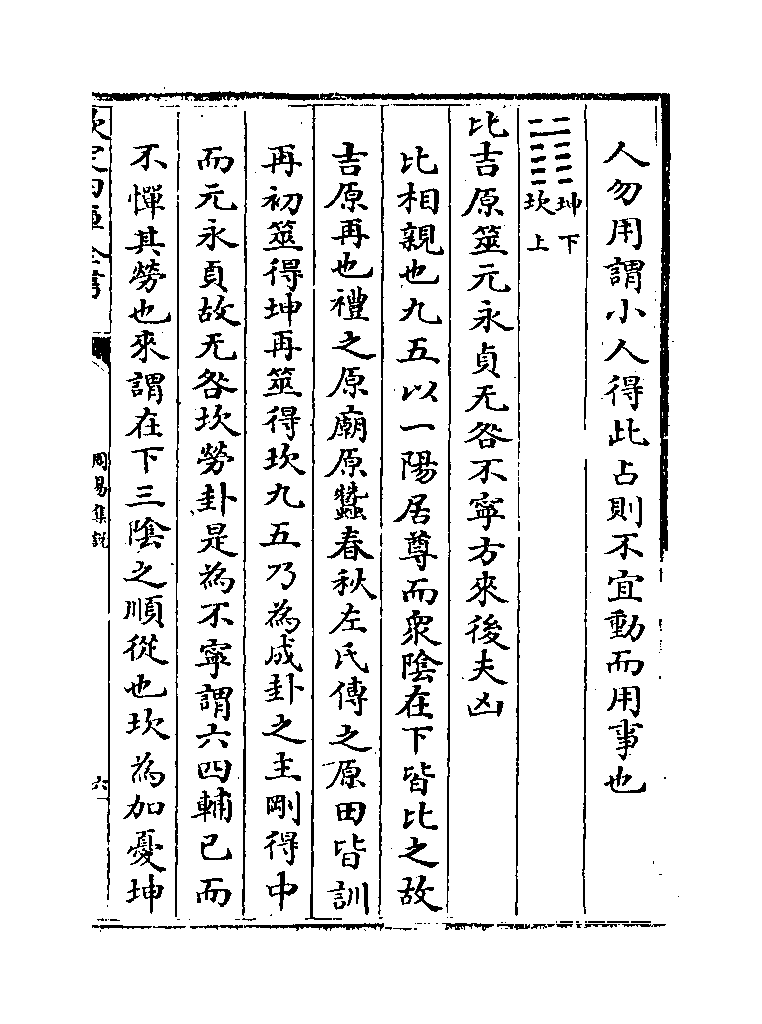 人勿用謂小人得此占則不宜動而用事也
䷇坤下坎上
比吉原筮元永貞无咎不寧方來後夫凶
比相親也九五以一陽居尊而衆陰在下皆比之故
吉原再也禮之原廟原蠶春秋左氏傳之原田皆訓
再初筮得坤再筮得坎九五乃為成卦之主剛得中
而元永貞故无咎坎勞卦是為不寧謂六四輔已而
不憚其勞也來謂在下三陰之順從也坎為加憂坤
欽定四庫全書
周易集說
六